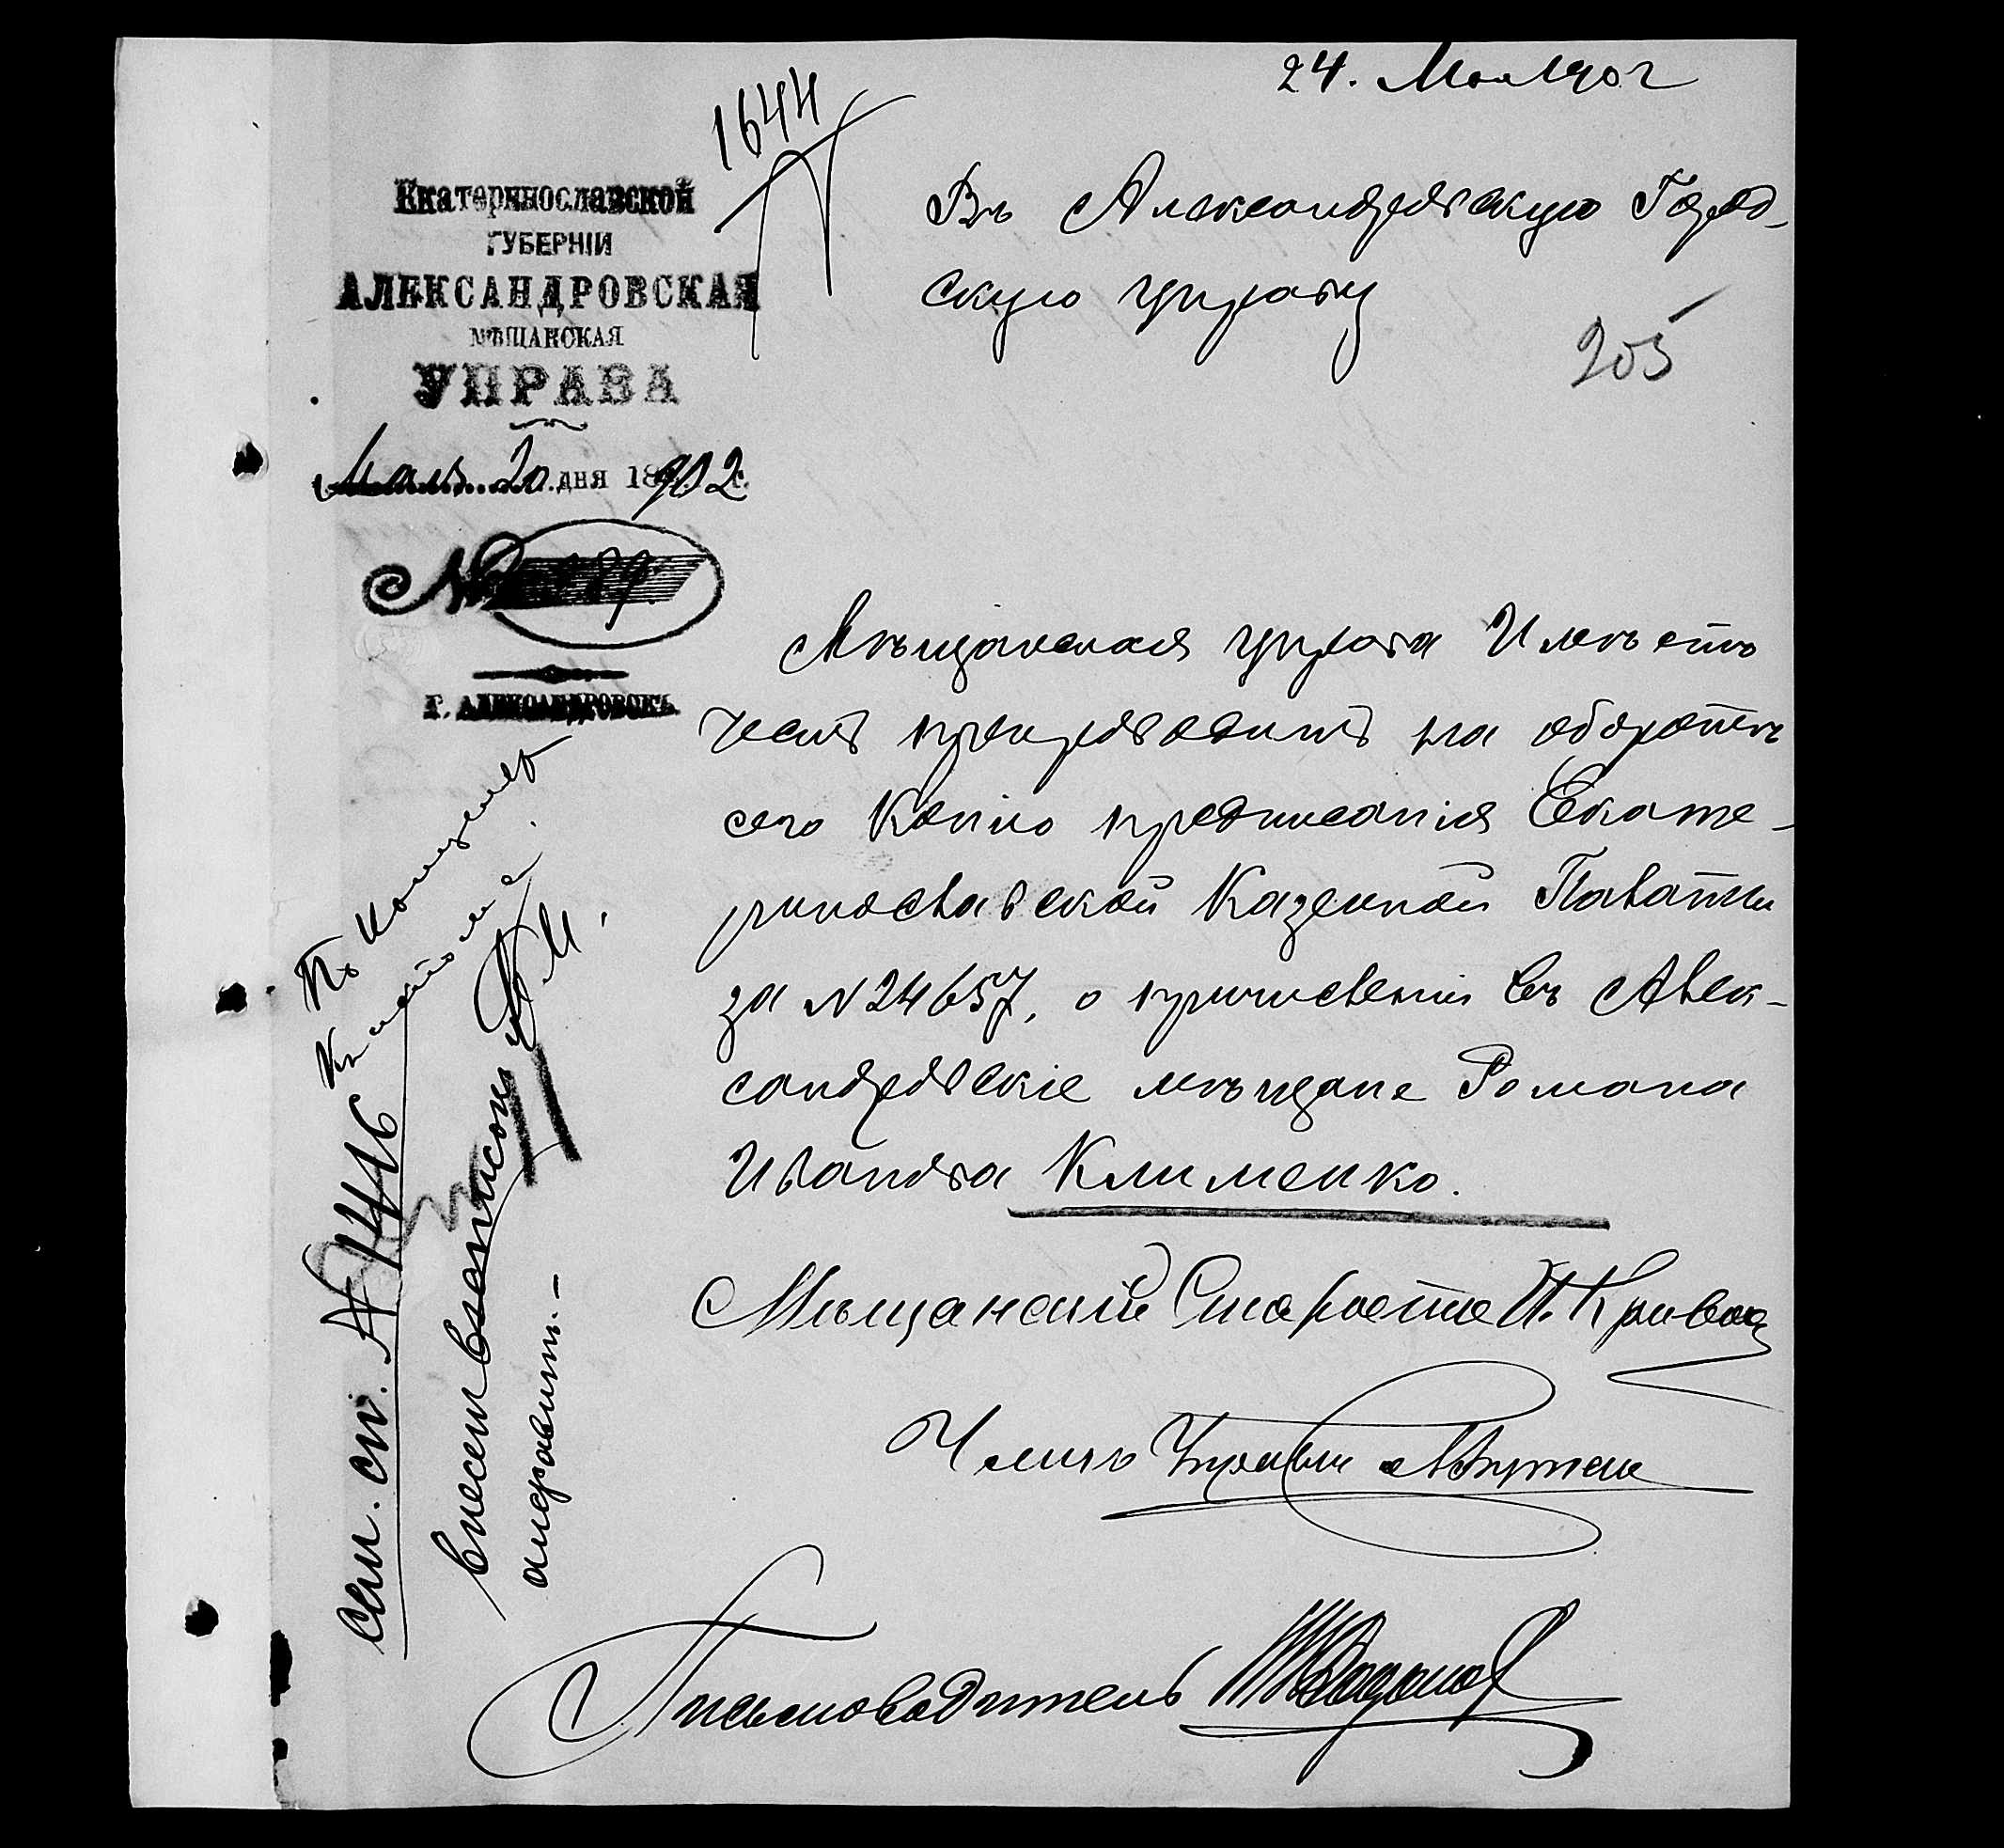 24. Мая 1902
1644
Екатеринославской
ГУБЕРНІИ
АЛЕКСАНДРОВСКАЯ
МѢЩАНСКАЯ
УПРАВА
Мая 20 дня 1902 г.
№
Г. АЛЕКСАНДРОВСКЪ.
Въ Александровскую Город-
скую управу
205
Мѣщанская управа Имѣетъ
честь препроводить на оборотѣ
сего Копію предписанія Екате-
ринославской Казенной Палаты
за №24657, о причисленіи въ Алек-
сандровскіе мѣщане Романа
Иванова Клименко.
Мѣщанскій Староста И. Кривой
Членъ Управы
Письмоводитель
сем. сп. № 1446